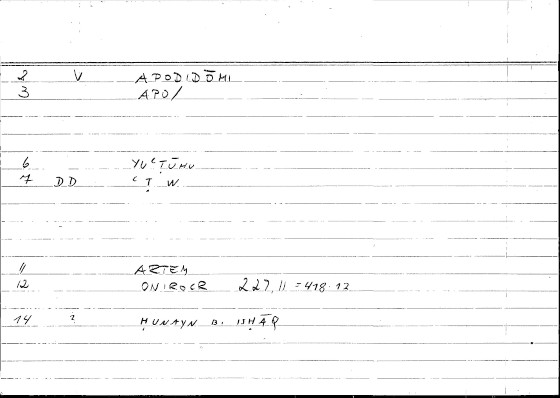 2 V APODIDŌMI
3 APO/
6 YUʿṬŪHU
7 DD ʿṬW
11 ARTEM
12 ONIROCR 227,11 = 418.12
14 ? ḤUNAYN B. ISḤĀQ